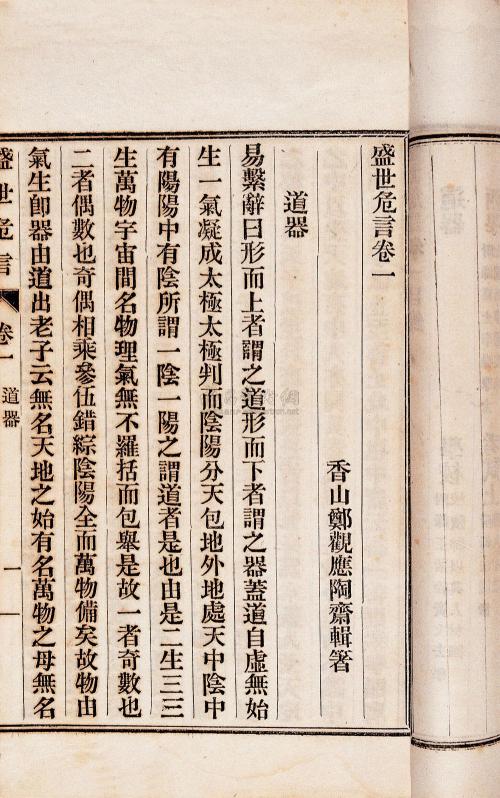 盛世危言卷一
香山鄭觀應陶齋輯著
道器
易繫辭曰形而上者謂之道形而下者謂之器蓋道自虛無始
生一氣凝成太極太極判而陰陽分天包地外地處天中陰中
有陽陽中有陰所謂一陰一陽之謂道者是也由是二生三三
生萬物宇宙間名物理氣無不羅括而包舉是故一者奇數也
二者偶數也奇偶相乘參伍錯綜陰陽全而萬物備矣故物由
氣生卽器由道出老子云無名天地之始有名萬物之母無名
盛世危言 卷一 道器 一